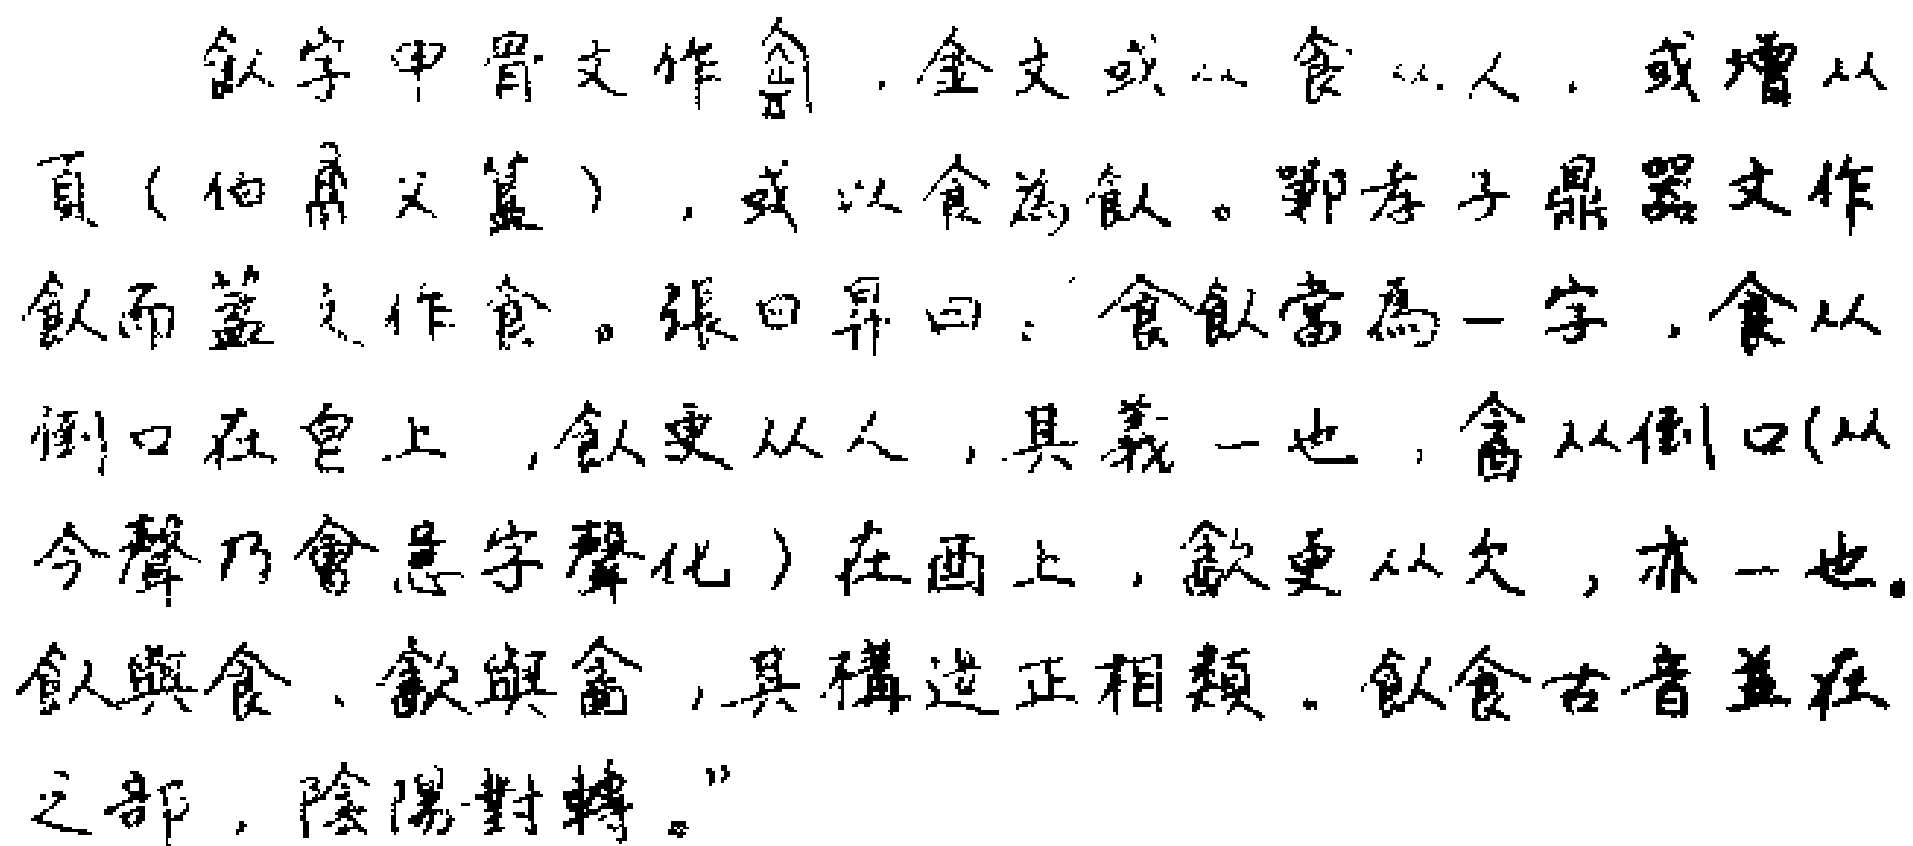 飤字甲骨文作，金文或从食从人，或增从
頁（伯父簋），或以食為飤。鄲孝子鼎器文作
飤而蓋文作食。張日昇曰：食飤當為一字，食从
倒口在皀上，飤更从人，其義一也，酓从倒口（从
今聲乃會意字聲化）在酉上，㱃更从欠，亦一也。
飤與食、㱃與酓，其構造正相類。飤食古音並在
之部，陰陽對轉。”